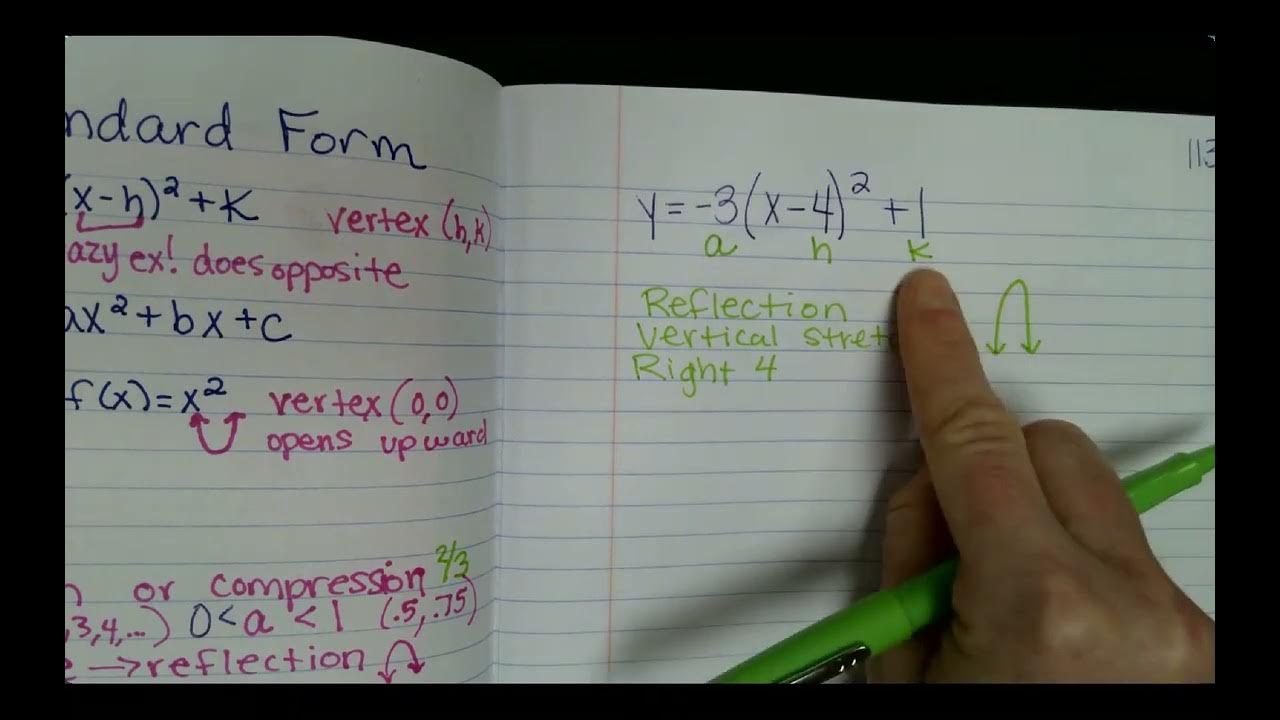 ndard Form
(x-h)²+K
vertex (h,k)
azy ex! does opposite
ax²+bx+c
f(x)=x² vertex (0,0)
opens upward
2/3
n or compression
,3,4,...) 0<a<1 (.5,.75)
e →reflection
113
y=-3(x-4)²+1
a h k
Reflection
Vertical stret
Right 4